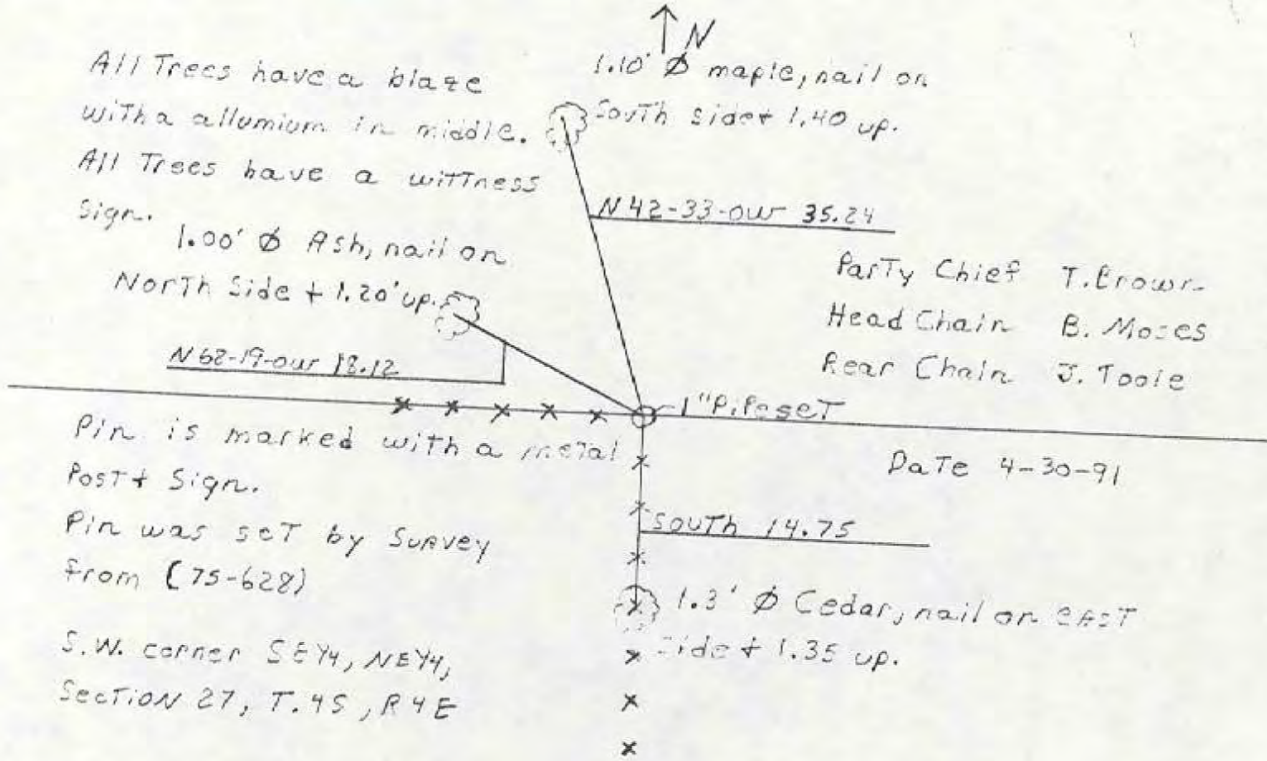 N
All Trees have a blaze
with a allumium in middle.
All Trees have a wittness
Sign.
1.10' Ø maple, nail on
South side + 1.40 up.
N 42-33-0W 35.24
1.00' Ø Ash, nail on
North Side + 1.20' up.
N 62-19-0W 18.12
Party Chief T. Brown
Head Chain B. Moses
Rear Chain J. Toole
1" Pipe set
Date 4-30-91
Pin is marked with a metal
Post + Sign.
Pin was set by Survey
from (75-628)
South 14.75
1.3' Ø Cedar, nail on East
Side + 1.35 up.
S.W. corner SE1/4, NE1/4,
Section 27, T.4S, R4E